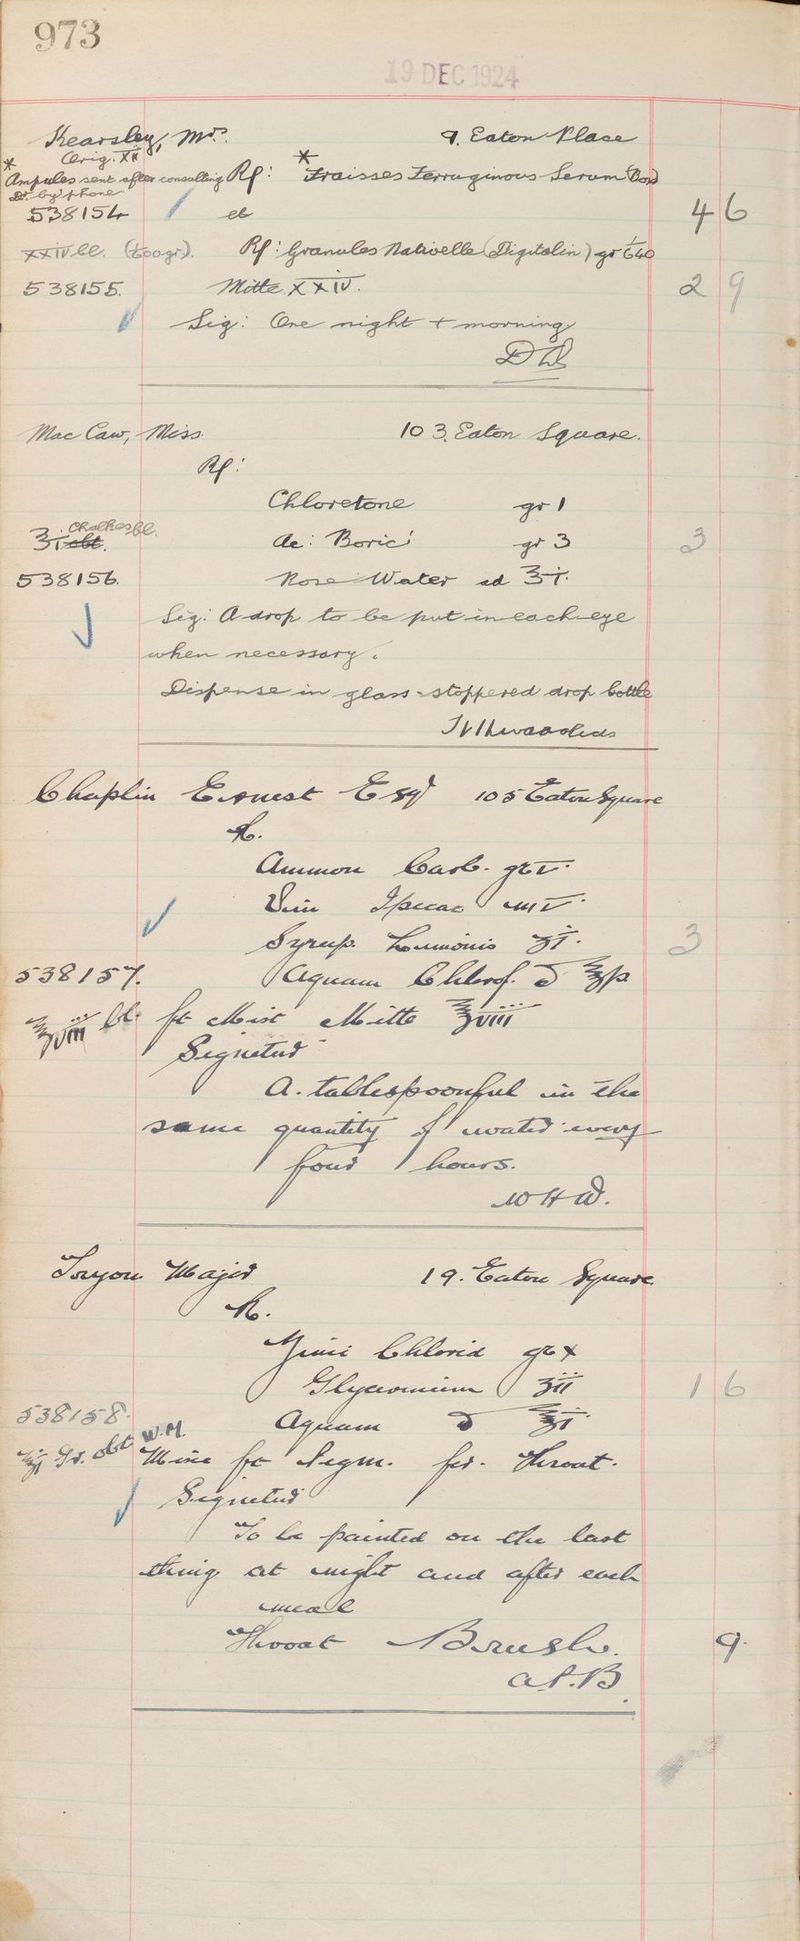 973
19 DEC 1924
Kearsley, Mrs. 9. Eaton Place
Orig. XII
* Ampules sent after consulting Rp: * Fraisses Ferruginous Serum (Box)
Dr. by 'phone
538154 et 4 6
XXIV bl. (1/600 gr). Rp: Granules Nativelle (Digitalin) gr 1/640
538155. Mitte XXIV. 2 9
Sig: One night + morning
Mac Caw, Miss. 103, Eaton Square.
Rp:
Chloretone gr 1
Chalkes bl.
ʒi obt. Ac: Boric: gr 3 3
538156. Rose Water ad ℥i.
Sig: A drop to be put in each eye
when necessary.
Dispense in glass-stoppered drop bottle
Chaplin Ernest Esqr 105 Eaton Square
R.
Ammon Carb. gr v.
Vin Ipecac m v.
Syrup. Limonis ʒi. 3
538157. Aquam Chlorof. ad ℥ss
℥viii bl. ft Mist Mitte ℥viii
Signetur
A. tablespoonful in the
same quantity of water every
four hours.
W H W.
Tryon Major 19. Eaton Square.
R.
Zinci Chlorid gr x
Glycerinum ʒii 1 6
538158. Aquam ad ℥i
℥i Gr. obt W.M. Misce ft Pigm. for Throat.
Signetur
To be painted on the last
thing at night and after each
meal
Throat Brush. 9.
A.P.B.